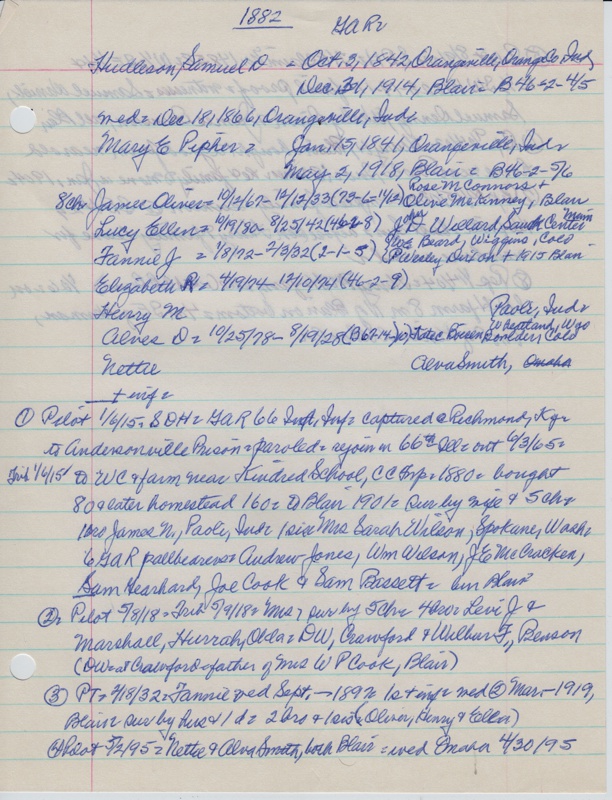 1882 GAR
Hudleson, Samuel D = Oct. 3, 1842, Orangeville, Orange Co Ind,
Dec. 31, 1914, Blair = B46-2-4/5
wed = Dec 18, 1866, Orangeville, Ind.
Mary E Pipher = Jan. 15, 1841, Orangeville, Ind.
May 2, 1918, Blair = B46-2-5/6
Rose McConnors +
8 ch James Oliver = 10/2/67 - 12/12/33 Olive McKinney, Blair
Lucy Ellen = 6/19/80 - 8/25/42 (46-2-8) Willard, Sauk Center Minn
Fannie J = 1/8/72 - 2/3/32 (2-1-5) Beard, Wiggins, Colo
Presley Dixon + 1915 Blair
Elizabeth R = 4/19/74 - 12/10/74 (46-2-9)
Henry M Paoli, Ind.
Wheatland, Wyo
Alves D = 10/25/78 - 8/19/28 Boulder, Colo
Nettie Alva Smith, Omaha
+ inf =
① Pilot 1/6/15 = SDH = GAR 66 Inf, Ind = captured @ Richmond, Ky =
to Andersonville Prison = paroled = rejoin 66th = out 6/3/65 =
Trib 1/6/15 to WC & farm near Kindred School, CC Twp = 1880 = bought
80 & later homestead 160 = to Blair 1901 = sur by wife & 5 ch =
1 bro James N, Paoli, Ind = 1 sis Mrs Sarah Wilson, Spokane, Wash =
6 GAR pallbearers = Andrew Jones, Wm Wilson, J E McCracken,
Sam Gearhard, Joe Cook & Sam Bassett = bur Blair
② Pilot 5/8/18 = Trib 5/9/18 = Mrs, sur by 5 ch = 4 bro = Levi J &
Marshall, Hurrah, Okla = DW, Crawford & Wilbur F, Benson
(DW = at Crawford = father of Mrs W P Cook, Blair)
③ PT = 2/18/32 = Fannie wed Sept. - 189 = 1 s + inf = wed ② Mar. - 1919,
Blair = sur by hus & 1 d = 2 bro & 1 sis (Oliver, Henry & Ellen)
Pilot = Nettie & Alva Smith, both Blair = wed Omaha 4/30/95